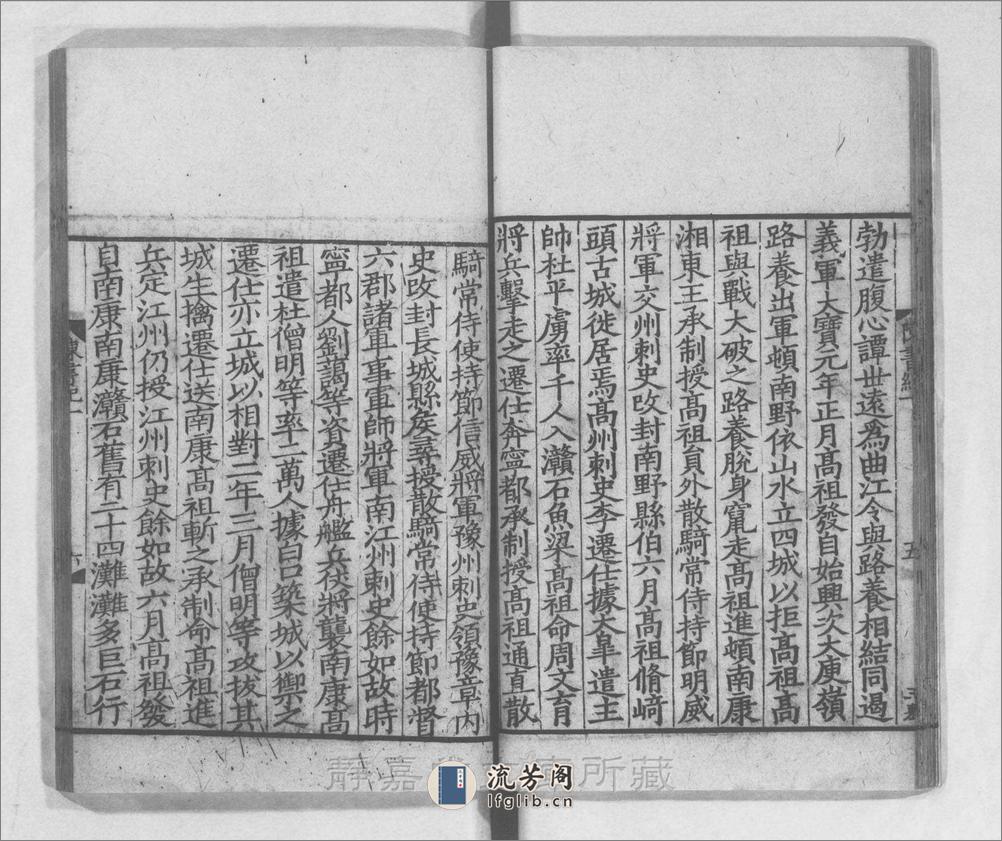 勃遣腹心譚世遠為曲江令與路養相結同遏
義軍大寶元年正月髙祖發自始興次大庾嶺
路養出軍頓南野依山水立四城以拒髙祖髙
祖與戰大破之路養脫身竄走髙祖進頓南康
湘東王承制授髙祖貟外散騎常侍持節明威
將軍交州刺史改封南野縣伯六月髙祖脩﨑
頭古城徙居焉髙州刺史李遷仕據大臯遣主
帥杜平虜率千人入灨石魚梁髙祖命周文育
將兵擊走之遷仕奔寧都承制授髙祖通直散
騎常侍使持節信威將軍豫州刺史領豫章内
史改封長城縣矦尋授散騎常侍使持節都督
六郡諸軍事軍師將軍南江州刺史餘如故時
寧都人劉藹等資遷仕舟艦兵仗將襲南康髙
祖遣杜僧明等率二萬人據白口築城以禦之
遷仕亦立城以相對二年三月僧明等攻拔其
城生擒遷仕送南康髙祖斬之承制命髙祖進
兵定江州仍授江州刺史餘如故六月髙祖發
自南康南康灨石舊有二十四灘灘多巨石行
五
六
静嘉
所藏
流芳阁
lfglib.cn